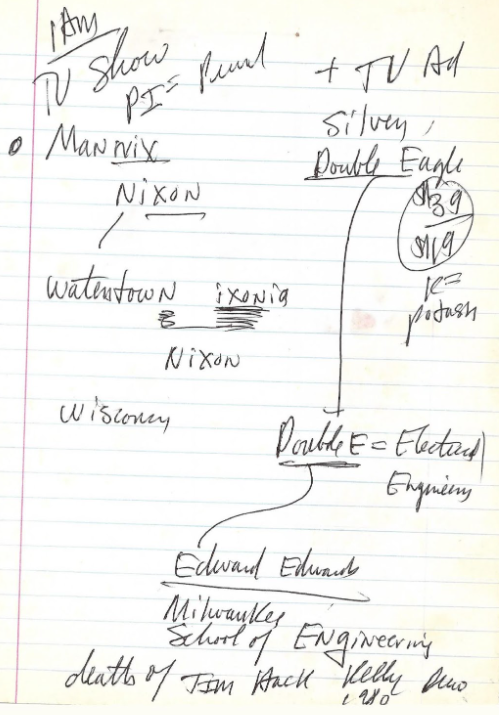 1AM
TV Show
PI =
+ TV Ad
Silver,
Double Eagle
$39
$119
K =
potash
Mannix
Nixon
Watertown ixonia
Nixon
Double E = Electrical
Engineering
Edward Edwards
Milwaukee
School of Engineering
deaths of Tim Hack Kelly Drew
1980